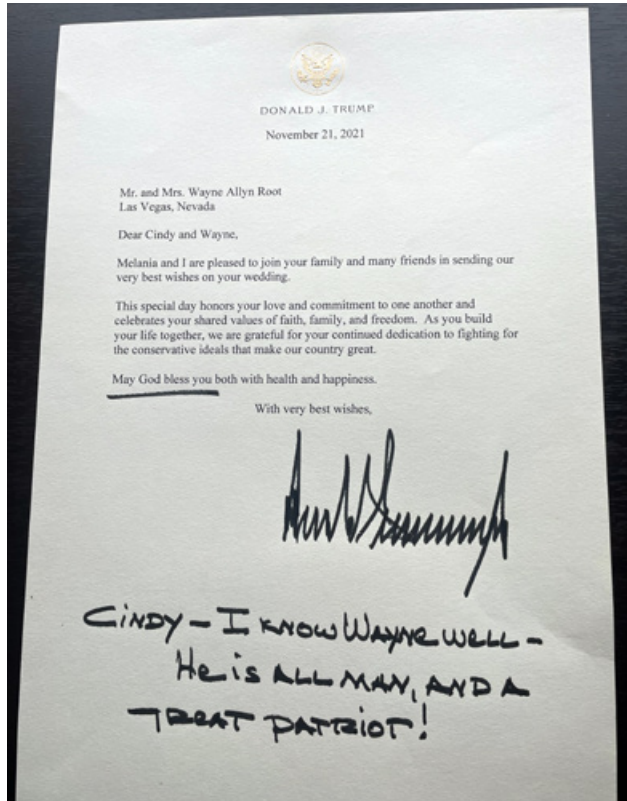 DONALD J. TRUMP
November 21, 2021
Mr. and Mrs. Wayne Allyn Root
Las Vegas, Nevada
Dear Cindy and Wayne,
Melania and I are pleased to join your family and many friends in sending our
very best wishes on your wedding.
This special day honors your love and commitment to one another and
celebrates your shared values of faith, family, and freedom. As you build
your life together, we are grateful for your continued dedication to fighting for
the conservative ideals that make our country great.
May God bless you both with health and happiness.
With very best wishes,
CiNDY – I KNOW WAYNE WELL –
He is ALL MAN, AND A
GREAT PATRIOT!